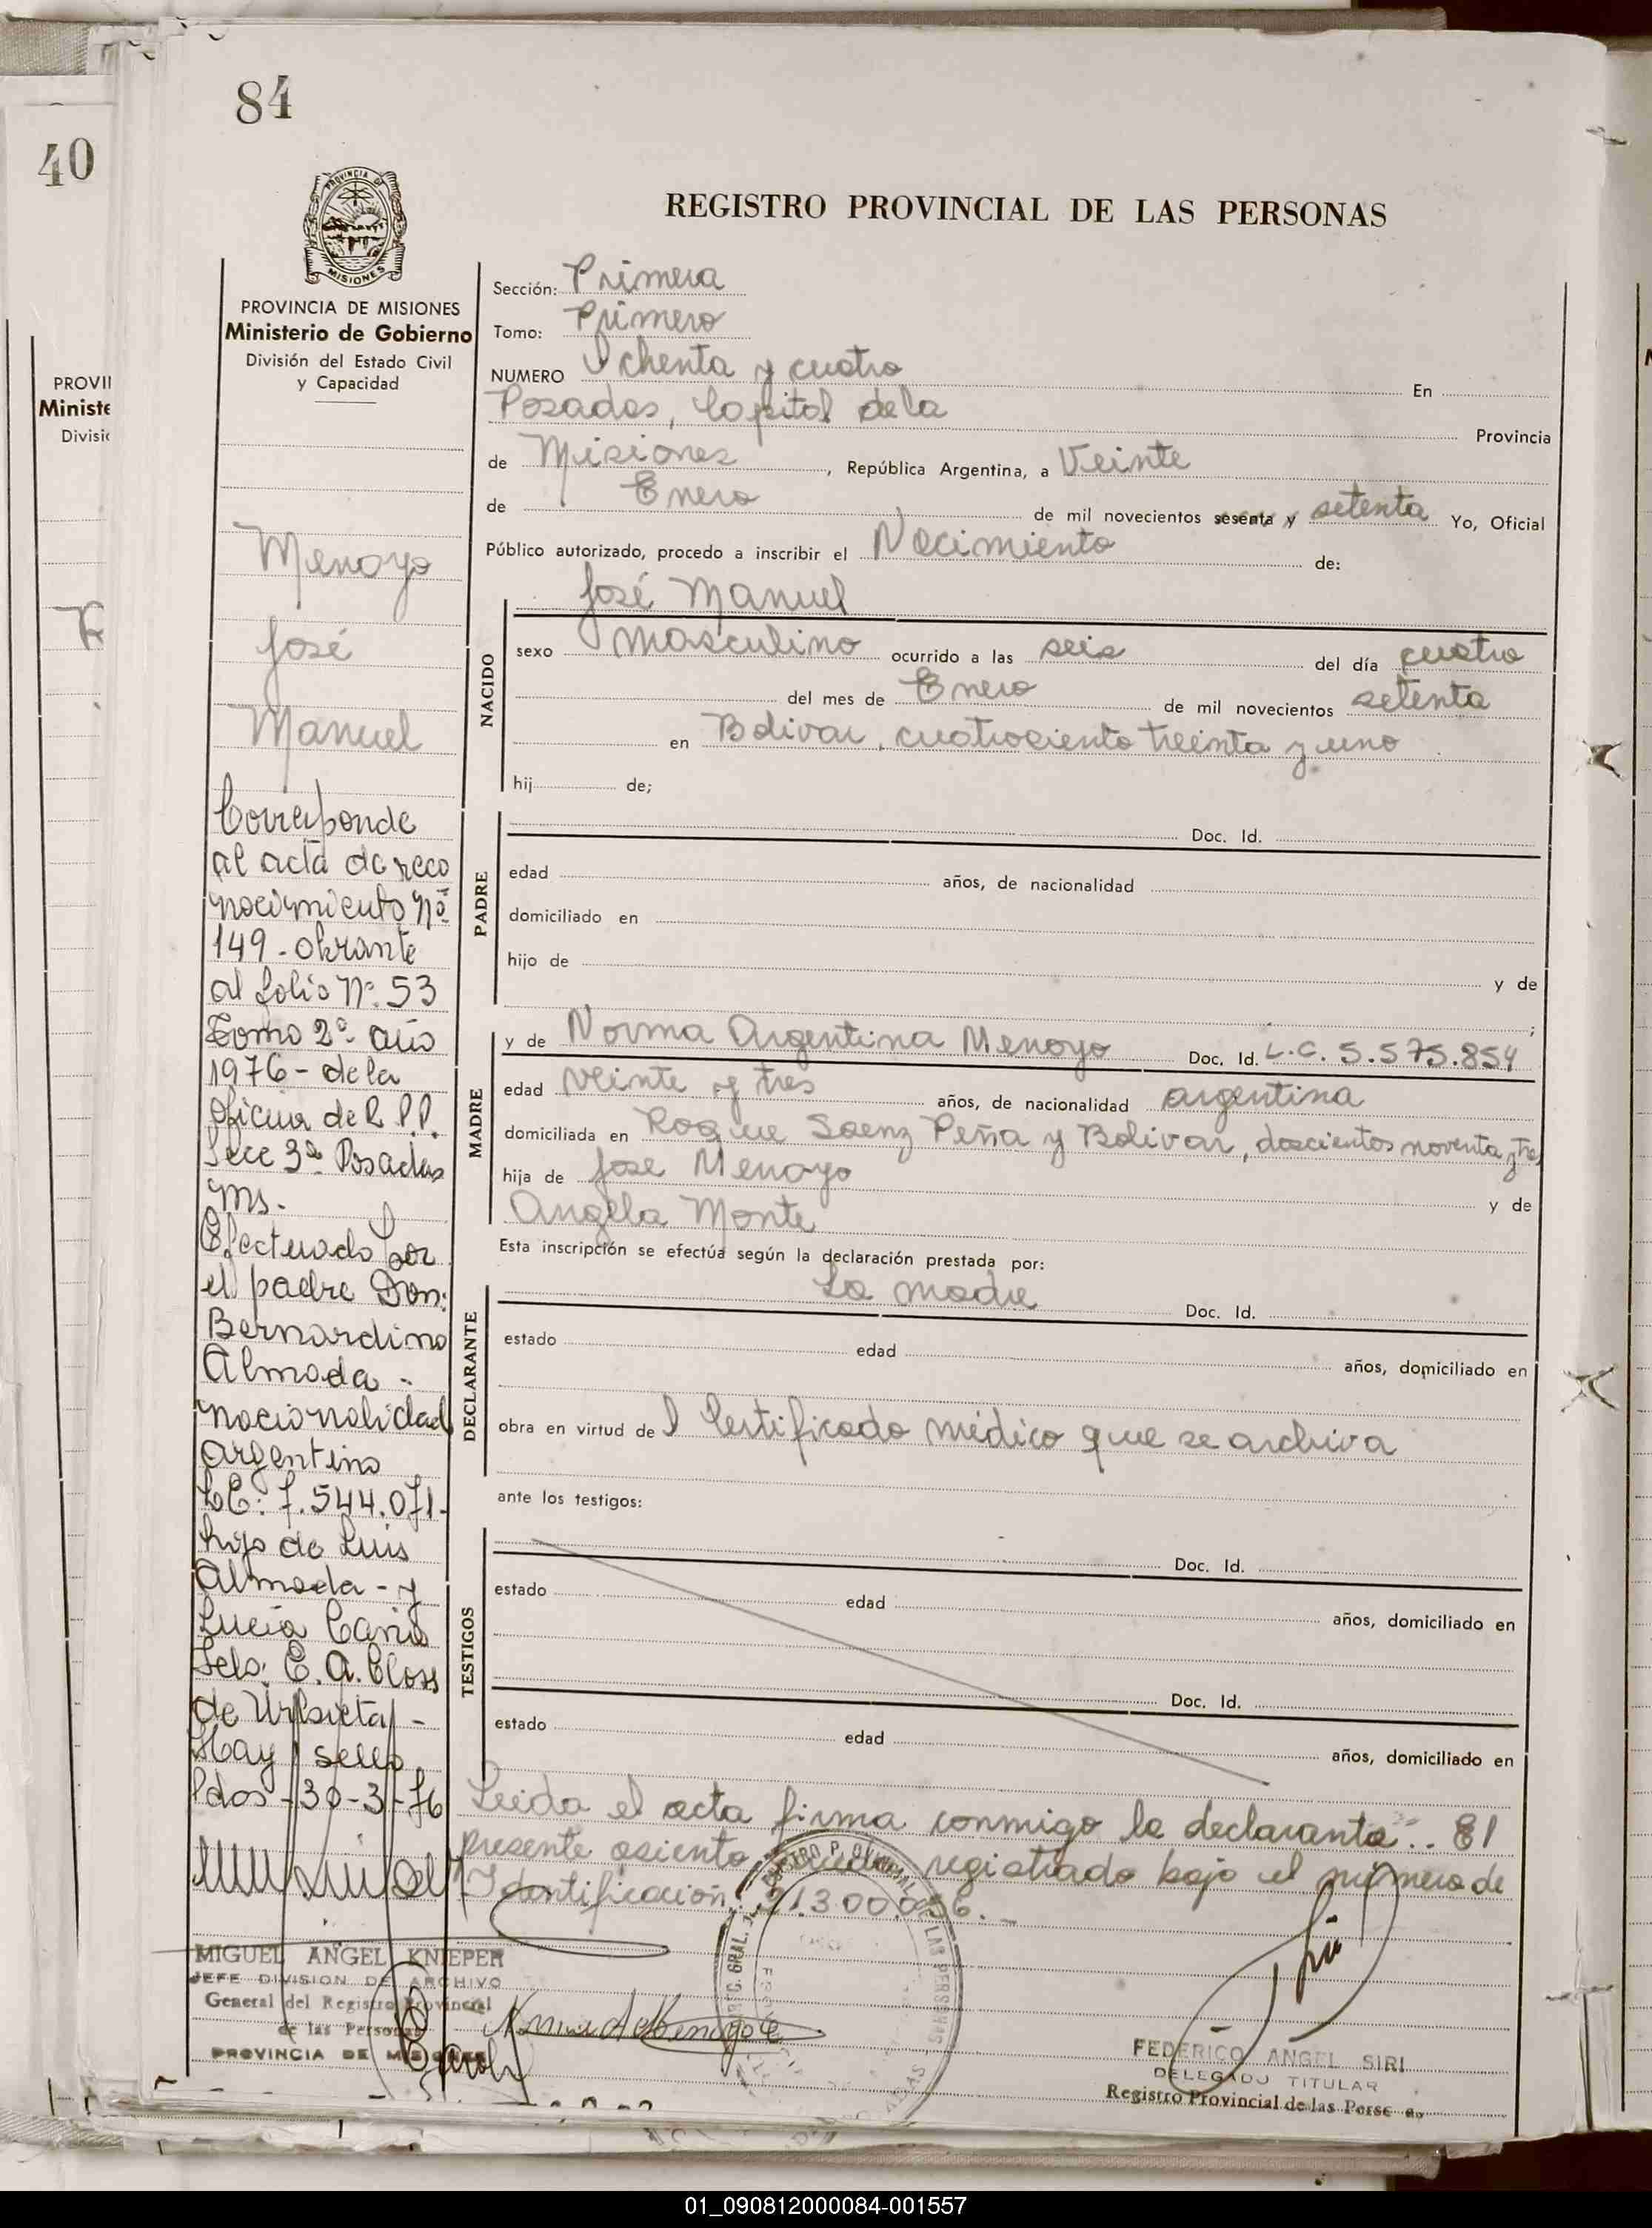 84
40
PROVINCIA DE
MISIONES
REGISTRO PROVINCIAL DE LAS PERSONAS
PROVINCIA DE MISIONES
Ministerio de Gobierno
División del Estado Civil
y Capacidad
Menoyo
José
Manuel
Corresponde
al acta de reco
nocimiento Nº
149 - obrante
al folio Nº 53
Tomo 2º año
1976 - de la
Oficina de R. P.P.
Secc 3ª Posadas
Ms.
Efectuado por
el padre Don:
Bernardino
Almada -
nacionalidad
argentino
LE: 7.544.071.
hijo de Luis
Almada - y
Lucía
Fdo: E. A. Closs
de Urbieta -
Hay sello
Pdas - 30-3-76
MIGUEL ANGEL KNIEPER
JEFE DIVISION DE ARCHIVO
General del Registro Provincial
de las Personas
PROVINCIA DE MISIONES
Sección: Primera
Tomo: Primero
NUMERO Ochenta y cuatro En
Posadas, Capital de la Provincia
de Misiones, República Argentina, a Veinte
de Enero de mil novecientos sesenta y setenta Yo, Oficial
Público autorizado, procedo a inscribir el Nacimiento de:
José Manuel
NACIDO
sexo masculino ocurrido a las seis del día cuatro
del mes de Enero de mil novecientos setenta
en Bolivar, cuatrociento treinta y uno
hij de;
PADRE
Doc. Id.
edad años, de nacionalidad
domiciliado en
hijo de y de
;
MADRE
y de Norma Argentina Menoyo Doc. Id. L.C. 5.575.854
edad veinte y tres años, de nacionalidad argentina
domiciliada en Roque Saenz Peña y Bolivar, doscientos noventa y tres
hija de José Menoyo y de
Angela Monte
Esta inscripción se efectúa según la declaración prestada por:
DECLARANTE
La madre Doc. Id.
estado edad años, domiciliado en
obra en virtud de l Certificado médico que se archiva
ante los testigos:
TESTIGOS
Doc. Id.
estado edad años, domiciliado en
Doc. Id.
estado edad años, domiciliado en
Leida el acta firma conmigo la declarante.. El
presente asiento queda registrado bajo el número de
Identificación: 21.300.056.-
FEDERICO ANGEL SIRI
DELEGADO TITULAR
Registro Provincial de las Perso
01_090812000084-001557